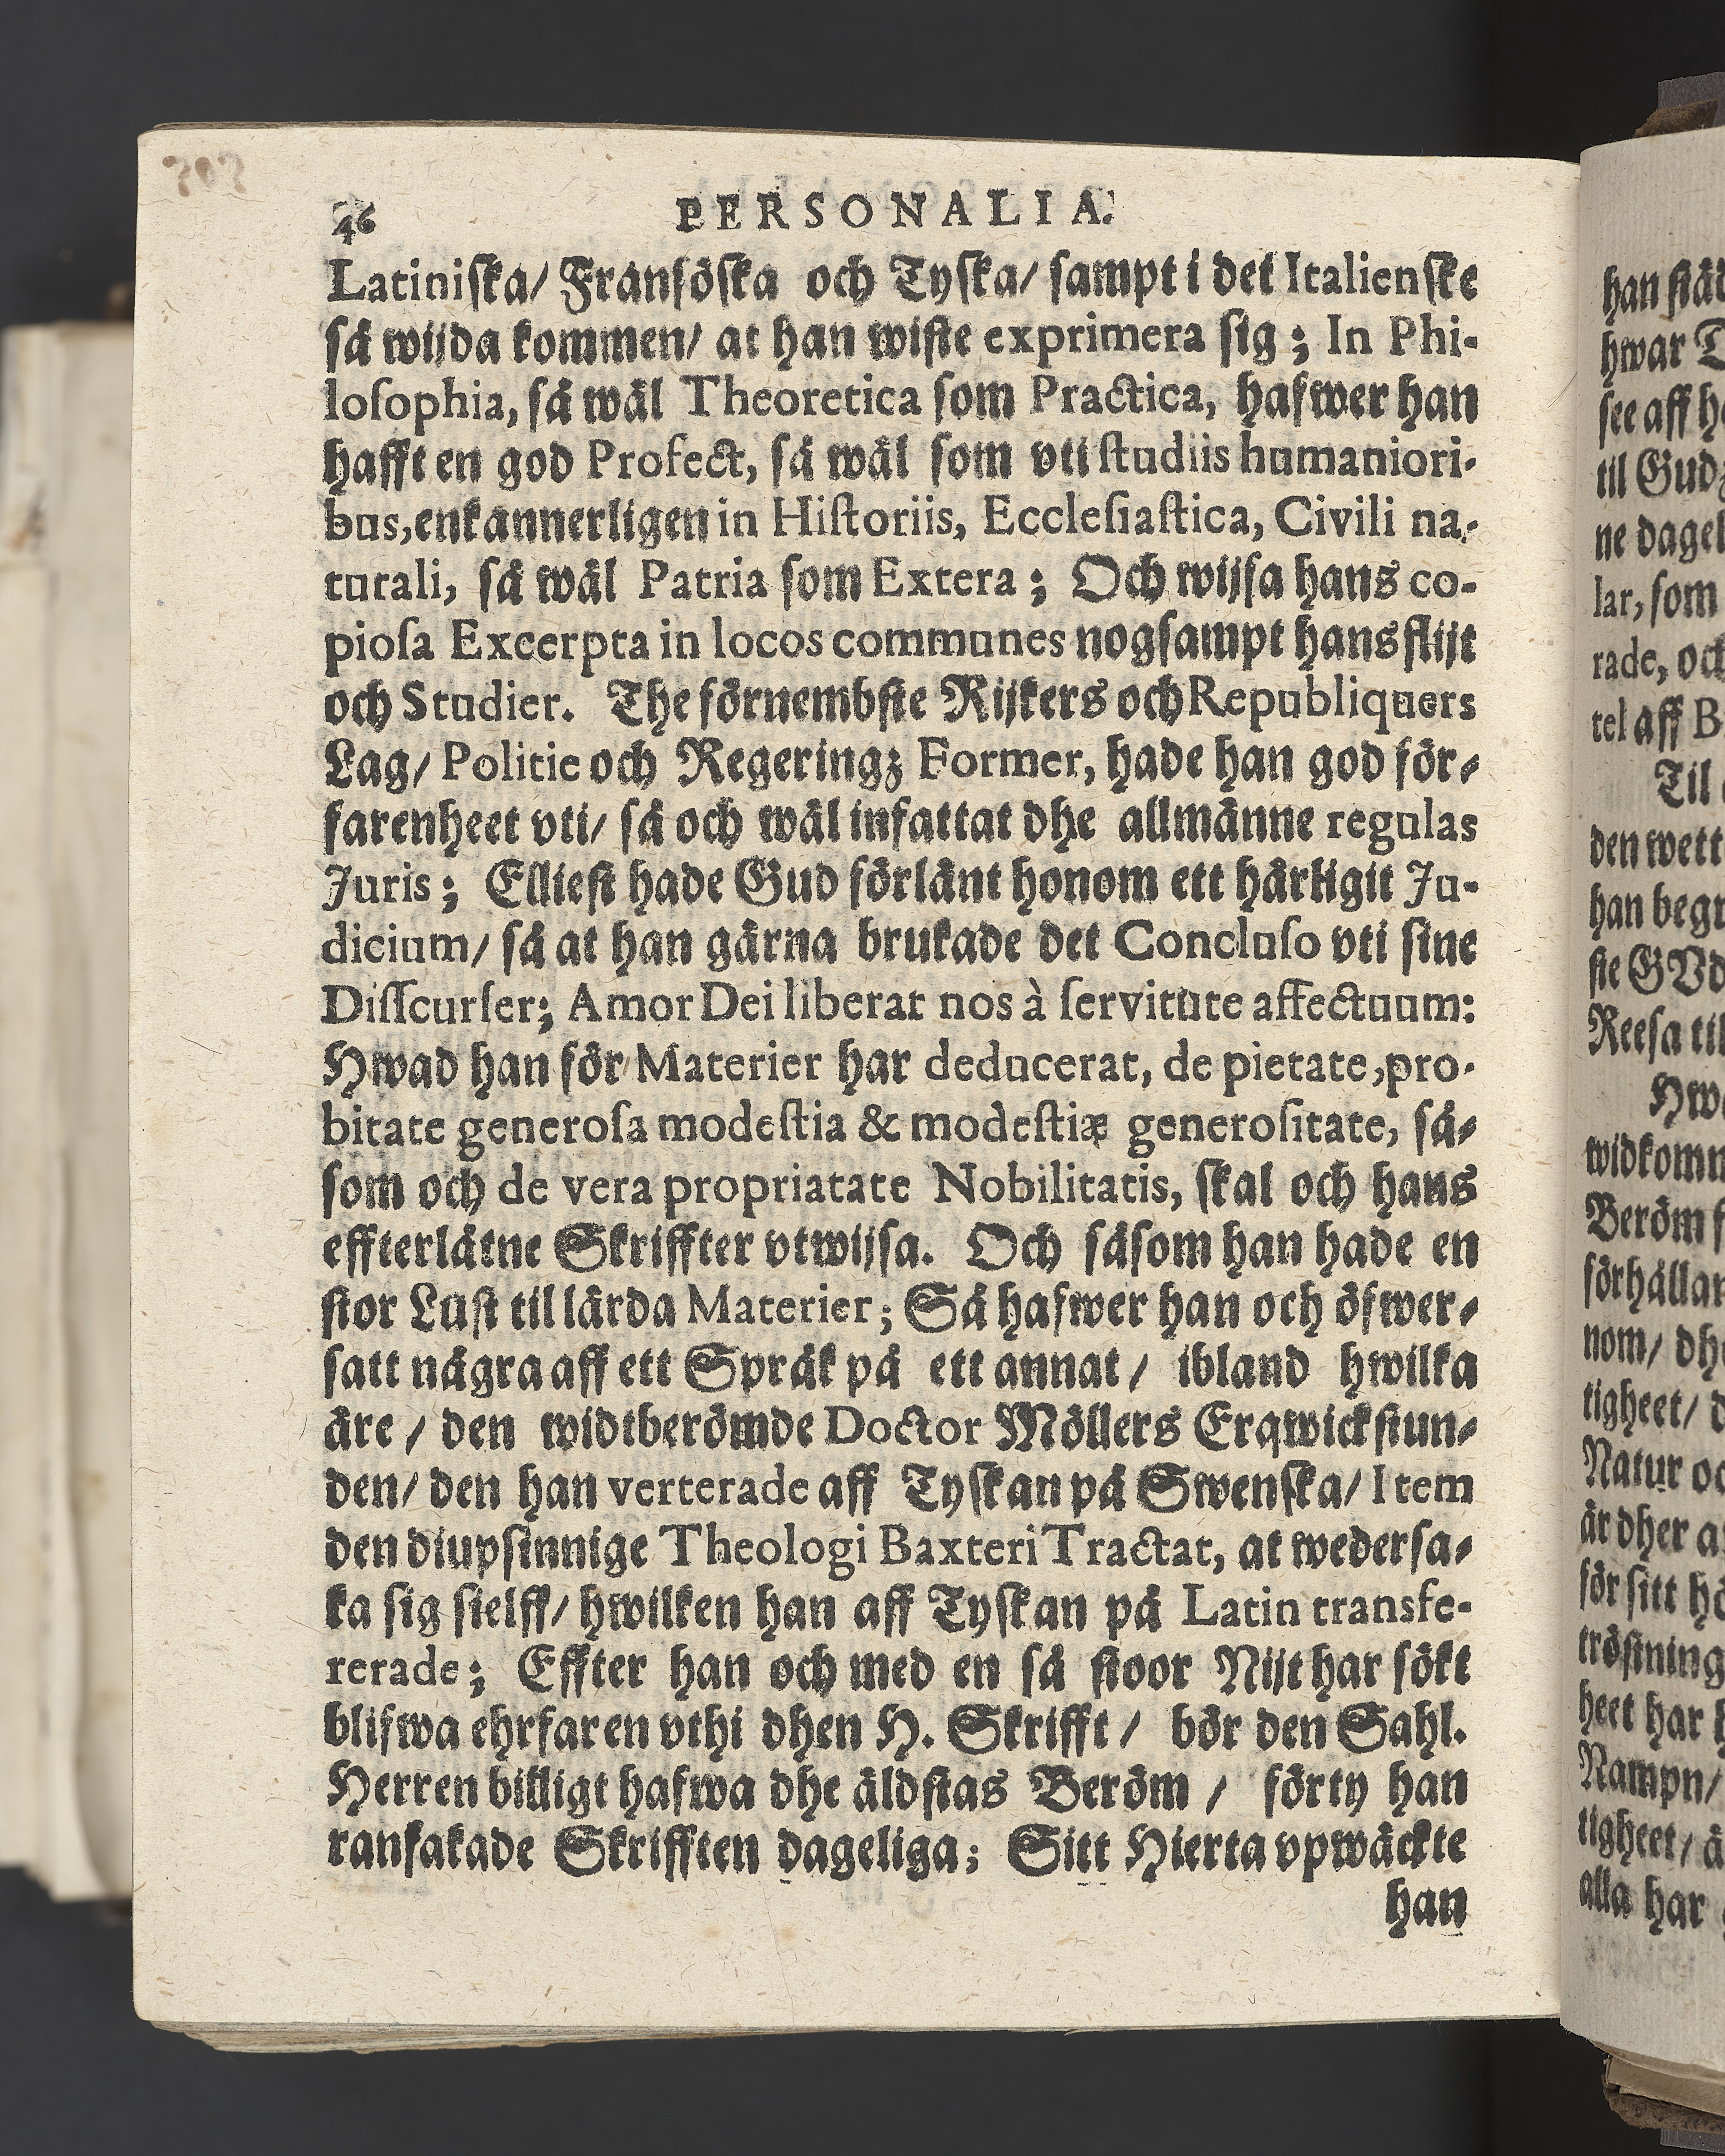 46 PERSONALIA.
Latiniſka/ Franſöſka och Tyſka/ ſampt i det Italienſke
ſå wijda kommen/ at han wiſte exprimera ſig; In Phi-
loſophia, ſå wäl Theoretica ſom Practica, hafwer han
hafft en god Profect, ſå wäl ſom vti ſtudiis humaniori-
bus, enkannerligen in Hiſtoriis, Eccleſiaſtica, Civili na-
turali, ſå wäl Patria ſom Extera; Och wijſa hans co-
pioſa Excerpta in locos communes nogſampt hans flijt
och Studier. The förnembſte Rijkers och Republiquers
Lag/ Politie och Regeringz Former, hade han god för-
farenheet vti/ ſå och wäl infattat dhe allmänne regulas
Juris; Ellieſt hade Gud förlänt honom ett härligit Ju-
dicium/ ſå at han gärna brukade det Concluſo vti ſine
Diſſcurſer; Amor Dei liberat nos à ſervitute affectuum:
Hwad han för Materier har deducerat, de pietate, pro-
bitate generoſa modeſtia & modeſtiæ generoſitate, ſå-
ſom och de vera propriatate Nobilitatis, ſkal och hans
effterlåtne Skriffter vtwijſa. Och ſåſom han hade en
ſtor Luſt til lärda Materier; Så hafwer han och öfwer-
ſatt några aff ett Språk på ett annat/ ibland hwilka
äre/ den widtberömde Doctor Möllers Erqwickſtun-
den/ den han verterade aff Tyſkan på Swenſka/ Item
den diupſinnige Theologi Baxteri Tractat, at wederſa-
ka ſig ſielff/ hwilken han aff Tyſkan på Latin transfe-
rerade; Effter han och med en ſå ſtoor Nijt har ſökt
blifwa ehrfaren vthi dhen H. Skrifft/ bör den Sahl.
Herren billigt hafwa dhe äldſtas Beröm/ förty han
ranſakade Skrifften dageliga; Sitt Hierta vpwäckte
han
han
hwar
ſee aff
til Gudz
ne dagel
lar, ſom
rade, och
tel aff
Til
den wett
han begr
ſte GVd
Reeſa til
widkomm
Beröm
förhållan
nom/
tigheet/
Natur
är dher
för ſitt
tröſtning
heet har
Nampn/
tigheet/
alla har